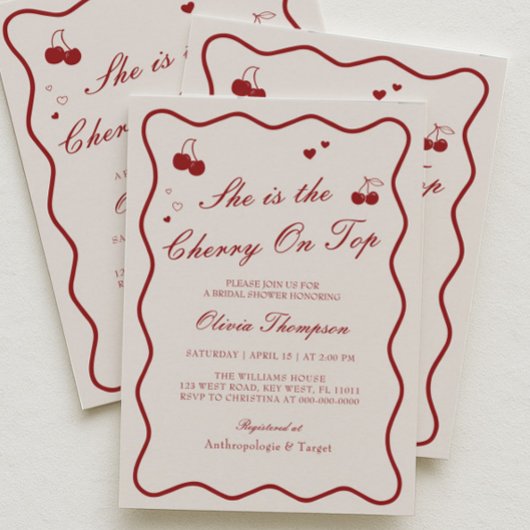 She is the
Cherry On Top
PLEASE JOIN US FOR
A BRIDAL SHOWER HONORING
Olivia Thompson
SATURDAY | APRIL 15 | AT 2:00 PM
THE WILLIAMS HOUSE
123 WEST ROAD, KEY WEST, FL 11011
RSVP TO CHRISTINA AT 000-000-0000
Registered at
Anthropologie & Target
She is the
Cherry